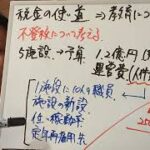 税金の使い道 ⇒ 考察につ
不登校について考える
5施設 → 予算 1.2億円
運営費(人件
1施設に10人の職員
施設の新設
定年再雇用
25